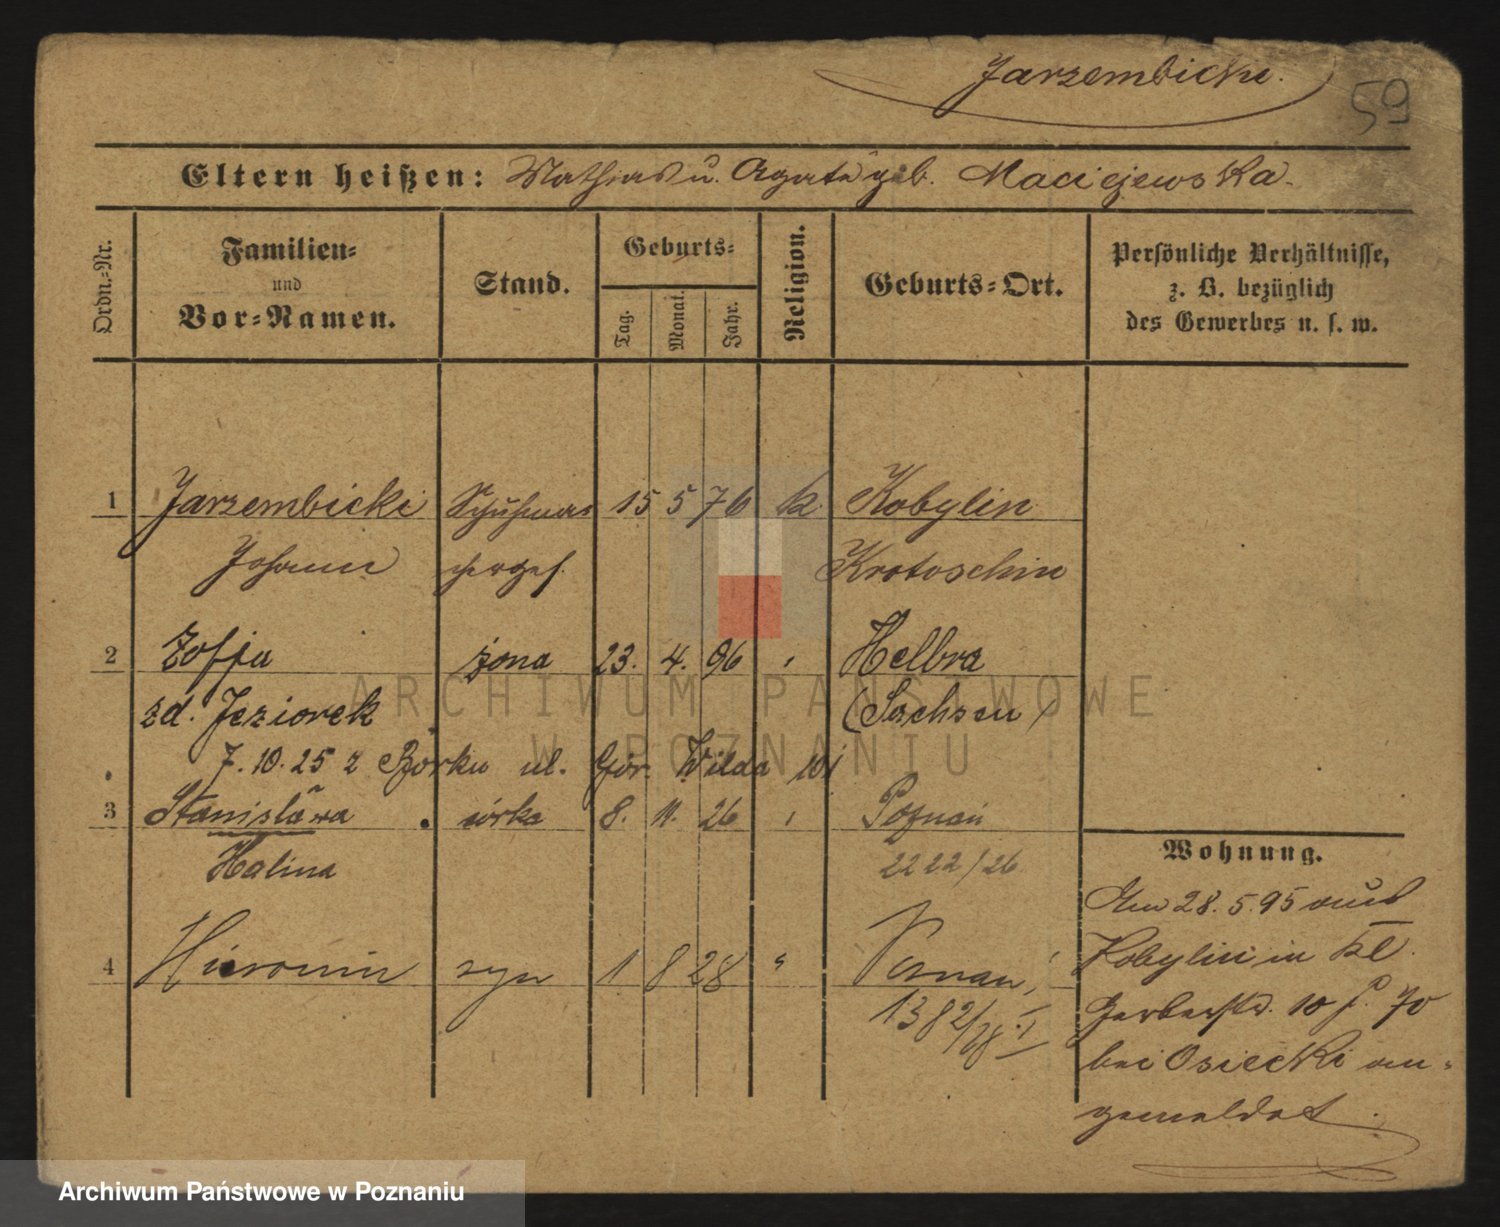 Jarzembicki.
59
Eltern heißen: Mathias u. Agata geb. Maciejewska.
Ordn.-Nr.
Familien-
und
Vor-Namen.
Stand.
Geburts-
Tag.
Monat.
Jahr.
Religion.
Geburts-Ort.
Persönliche Verhältnisse,
z. B. bezüglich
des Gewerbes u. s. w.
1 Jarzembicki Schuhma 15 5 76 k Kobylin
Johann cherges. Krotoschin
2 Zofja żona 23. 4. 96 Helbra
zd. Jeziorek (Sachsen)
7.10.25 z ul. Gór. Wilda 101
3 Stanisława córka 8. 11. 26 Poznań
Halina 2222/26
4 Hieronim syn 1 8 28 " Poznań
1382/28 I
Wohnung.
Am 28.5.95 aus
Kobylin in Kl.
Gerberstr. 10 f. 70
bei Osiecki an-
gemeldet.
ARCHIWUM PAŃSTWOWE
W POZNANIU
Archiwum Państwowe w Poznaniu